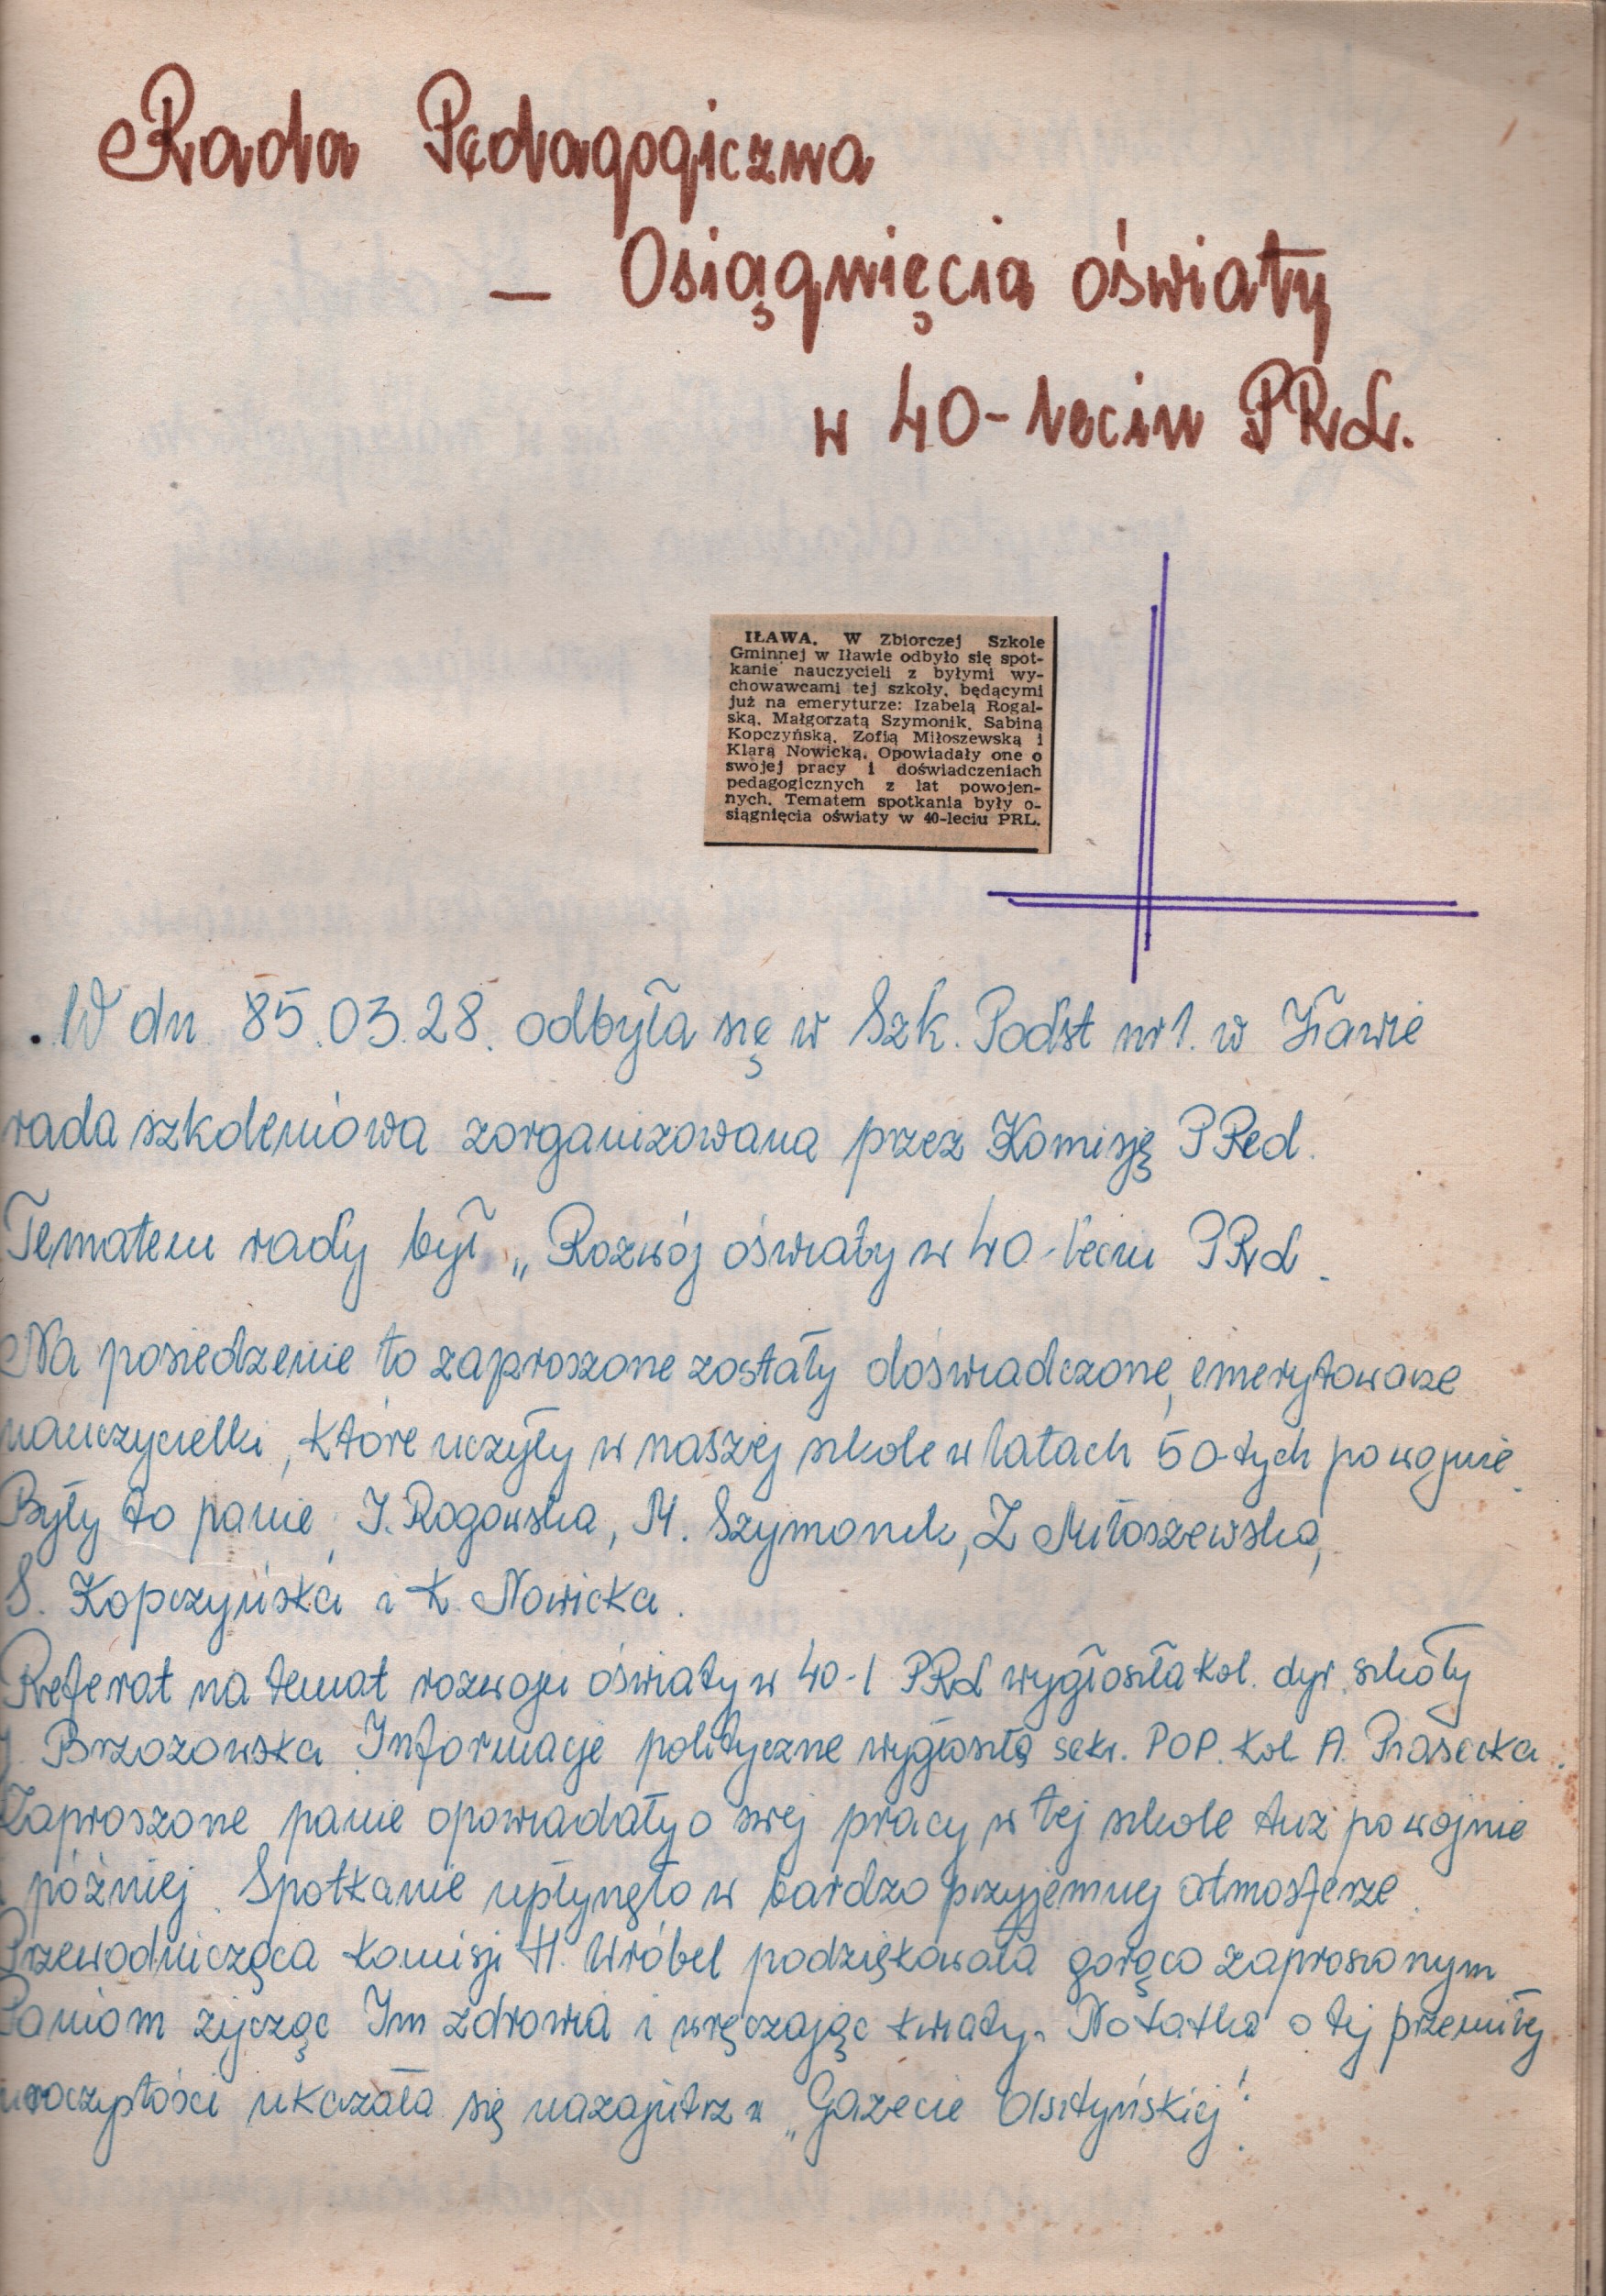 Rada Pedagogiczna
— Osiągnięcia oświaty
w 40-leciu PRL.
IŁAWA. W Zbiorczej Szkole
Gminnej w Iławie odbyło się spot-
kanie nauczycieli z byłymi wy-
chowawcami tej szkoły, będącymi
już na emeryturze: Izabelą Rogal-
ską, Małgorzatą Szymonik, Sabiną
Kopczyńską, Zofią Miłoszewską i
Klarą Nowicką. Opowiadały one o
swojej pracy i doświadczeniach
pedagogicznych z lat powojen-
nych. Tematem spotkania były o-
siągnięcia oświaty w 40-leciu PRL.
W dn 85.03.28. odbyła się w Szk. Podst nr 1. w Iławie
rada szkoleniowa zorganizowana przez Komisję PPed.
Tematem rady był „Rozwój oświaty w 40-leciu PRL.
Na posiedzenie to zaproszone zostały doświadczone, emerytowane
nauczycielki, które uczyły w naszej szkole w latach 50-tych po wojnie.
Były to panie, I. Rogowska, M. Szymonik, Z Miłoszewska,
S. Kopczyńska i K. Nowicka.
Referat na temat rozwoju oświaty w 40-l PRL wygłosiła kol. dyr. szkoły
J. Brzozowska. Informacje polityczne wygłosiła sekr. POP. kol A. Piasecka.
Zaproszone panie opowiadały o swej pracy w tej szkole tuż po wojnie
i później. Spotkanie upłynęło w bardzo przyjemnej atmosferze.
Przewodnicząca komisji H. Wróbel podziękowała gorąco zaproszonym
Paniom życząc Im zdrowia i wręczając kwiaty. Notatka o tej przemiłej
uroczystości ukazała się nazajutrz w „Gazecie Olsztyńskiej".